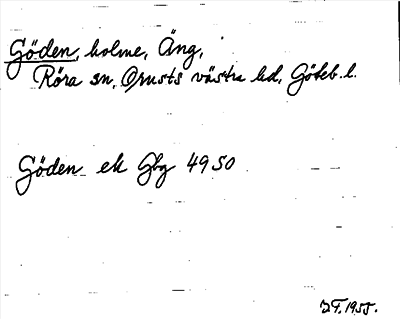 Göden, holme, Äng,
Röra sn, Orusts västra hd, Göteb. l.
Göden ek Gbg 4950
1955.